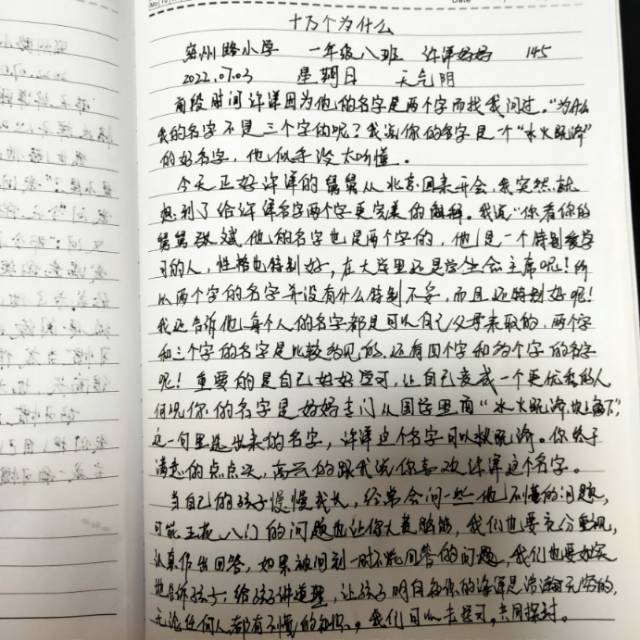 十万个为什么
郑州路小学 一年级八班 许泽妈妈 145
2022.07.03 星期日 天气阴
有段时间许泽因为他的名字是两个字而找我问过。“为什么
我的名字不是三个字的呢？我说你的名字是一个“水火既济”
的好名字，他似乎没太听懂。
今天正好许泽的舅舅从北京回来开会，我突然就
想到了给许泽名字两个字更完美的解释。我说：“你看你的
舅舅张斌他的名字也是两个字的，他是一个特别爱学
习的人，性格也特别好，在大学里还是学生会主席呢！所
以两个字的名字并没有什么特别不妥，而且还特别好呢！
我还告诉他，每个人的名字都是可以自己父母来取的，两个字
和三个字的名字是比较常见的，还有四个字和多个字的名字
呢！重要的是自己好好学习，让自己变成一个更优秀的人
何况你的名字是妈妈专门从国学里面“水火既济，
这一句里选出来的名字，许泽这个名字可以 既济。你终于
满意的点点头，高兴的跟我说你喜欢许泽这个名字。
当自己的孩子慢慢成长，经常会问一些他不懂的问题，
可能五花八门的问题也让你大费脑筋，我们也要充分重视，
认真作出回答，如果被问到一时不能回答的问题，我们也要如实
地告诉孩子；给孩子讲道理，让孩子明白知识的海洋是浩瀚无穷的，
无论任何人都有不懂的知识。我们可以去学习，共同探讨。